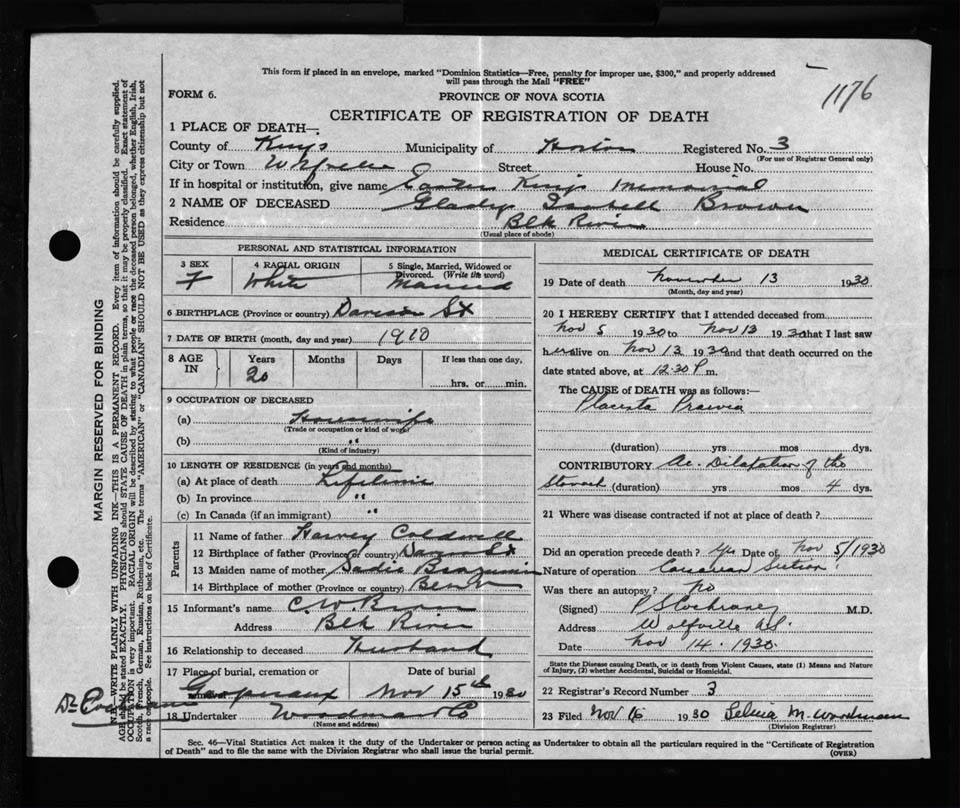 This form if placed in an envelope, marked "Dominion Statistics—Free, penalty for improper use, $300," and properly addressed
will pass through the Mail "FREE"
1176
FORM 6.
PROVINCE OF NOVA SCOTIA
CERTIFICATE OF REGISTRATION OF DEATH
1 PLACE OF DEATH—
County of Kings Municipality of Horton Registered No. 3
(For use of Registrar General only)
City or Town Wolfville Street House No.
If in hospital or institution, give name Eastern Kings Memorial
2 NAME OF DECEASED Gladys Isabell Brown
Residence Blk River
(Usual place of abode)
PERSONAL AND STATISTICAL INFORMATION
3 SEX 4 RACIAL ORIGIN 5 Single, Married, Widowed or
Divorced. (Write the word)
F White Married
6 BIRTHPLACE (Province or country) Davison St
7 DATE OF BIRTH (month, day and year) 1910
8 AGE IN Years Months Days If less than one day,
20 hrs. or min.
9 OCCUPATION OF DECEASED
(a) Housewife
(Trade or occupation or kind of work)
(b) "
(Kind of industry)
10 LENGTH OF RESIDENCE (in years and months)
(a) At place of death Lifetime
(b) In province "
(c) In Canada (if an immigrant) "
Parents
11 Name of father Harvey Coldwell
12 Birthplace of father (Province or country) Davison St
13 Maiden name of mother Sadie
14 Birthplace of mother (Province or country)
15 Informant's name C W Brown
Address Blk River
16 Relationship to deceased Husband
17 Place of burial, cremation or Date of burial
Gaspereaux Nov 15th 1930
18 Undertaker Woodman Co
(Name and address)
MEDICAL CERTIFICATE OF DEATH
19 Date of death November 13 1930
(Month, day and year)
20 I HEREBY CERTIFY that I attended deceased from
Nov 5 1930 to Nov 13 1930 that I last saw
her alive on Nov 13 1930 and that death occurred on the
date stated above, at 12.30 P m.
The CAUSE of DEATH was as follows:—
Placenta Praevia
(duration) yrs mos dys.
CONTRIBUTORY Ac. Dilatation of the
Stomach (duration) yrs mos 4 dys.
21 Where was disease contracted if not at place of death?
Did an operation precede death? Yes Date of Nov 5/1930
Nature of operation Caesarean Section
Was there an autopsy? No
(Signed) P S Cochrane M.D.
Address Wolfville N.S.
Date Nov 14 . 1930
State the Disease causing Death, or in death from Violent Causes, state (1) Means and Nature
of Injury, (2) whether Accidental, Suicidal or Homicidal.
22 Registrar's Record Number 3
23 Filed Nov 16 1930 M. Woodman
(Division Registrar)
Sec. 46—Vital Statistics Act makes it the duty of the Undertaker or person acting as Undertaker to obtain all the particulars required in the "Certificate of Registration
of Death" and to file the same with the Division Registrar who shall issue the burial permit.
(OVER)
MARGIN RESERVED FOR BINDING
N.B.—WRITE PLAINLY WITH UNFADING INK—THIS IS A PERMANENT RECORD. Every item of information should be carefully supplied.
AGE should be stated EXACTLY. PHYSICIANS should STATE CAUSE OF DEATH in plain terms, so that it may be properly classified. Exact statement of
OCCUPATION is very important. RACIAL ORIGIN will be described by stating to what people or race the deceased person belonged, whether English, Irish,
Scotch, French, German, Russian, Ruthenian, etc. The terms "AMERICAN" or "CANADIAN" SHOULD NOT BE USED as they express citizenship but not
a race or people. See instructions on back of Certificate.
Dr Cochrane